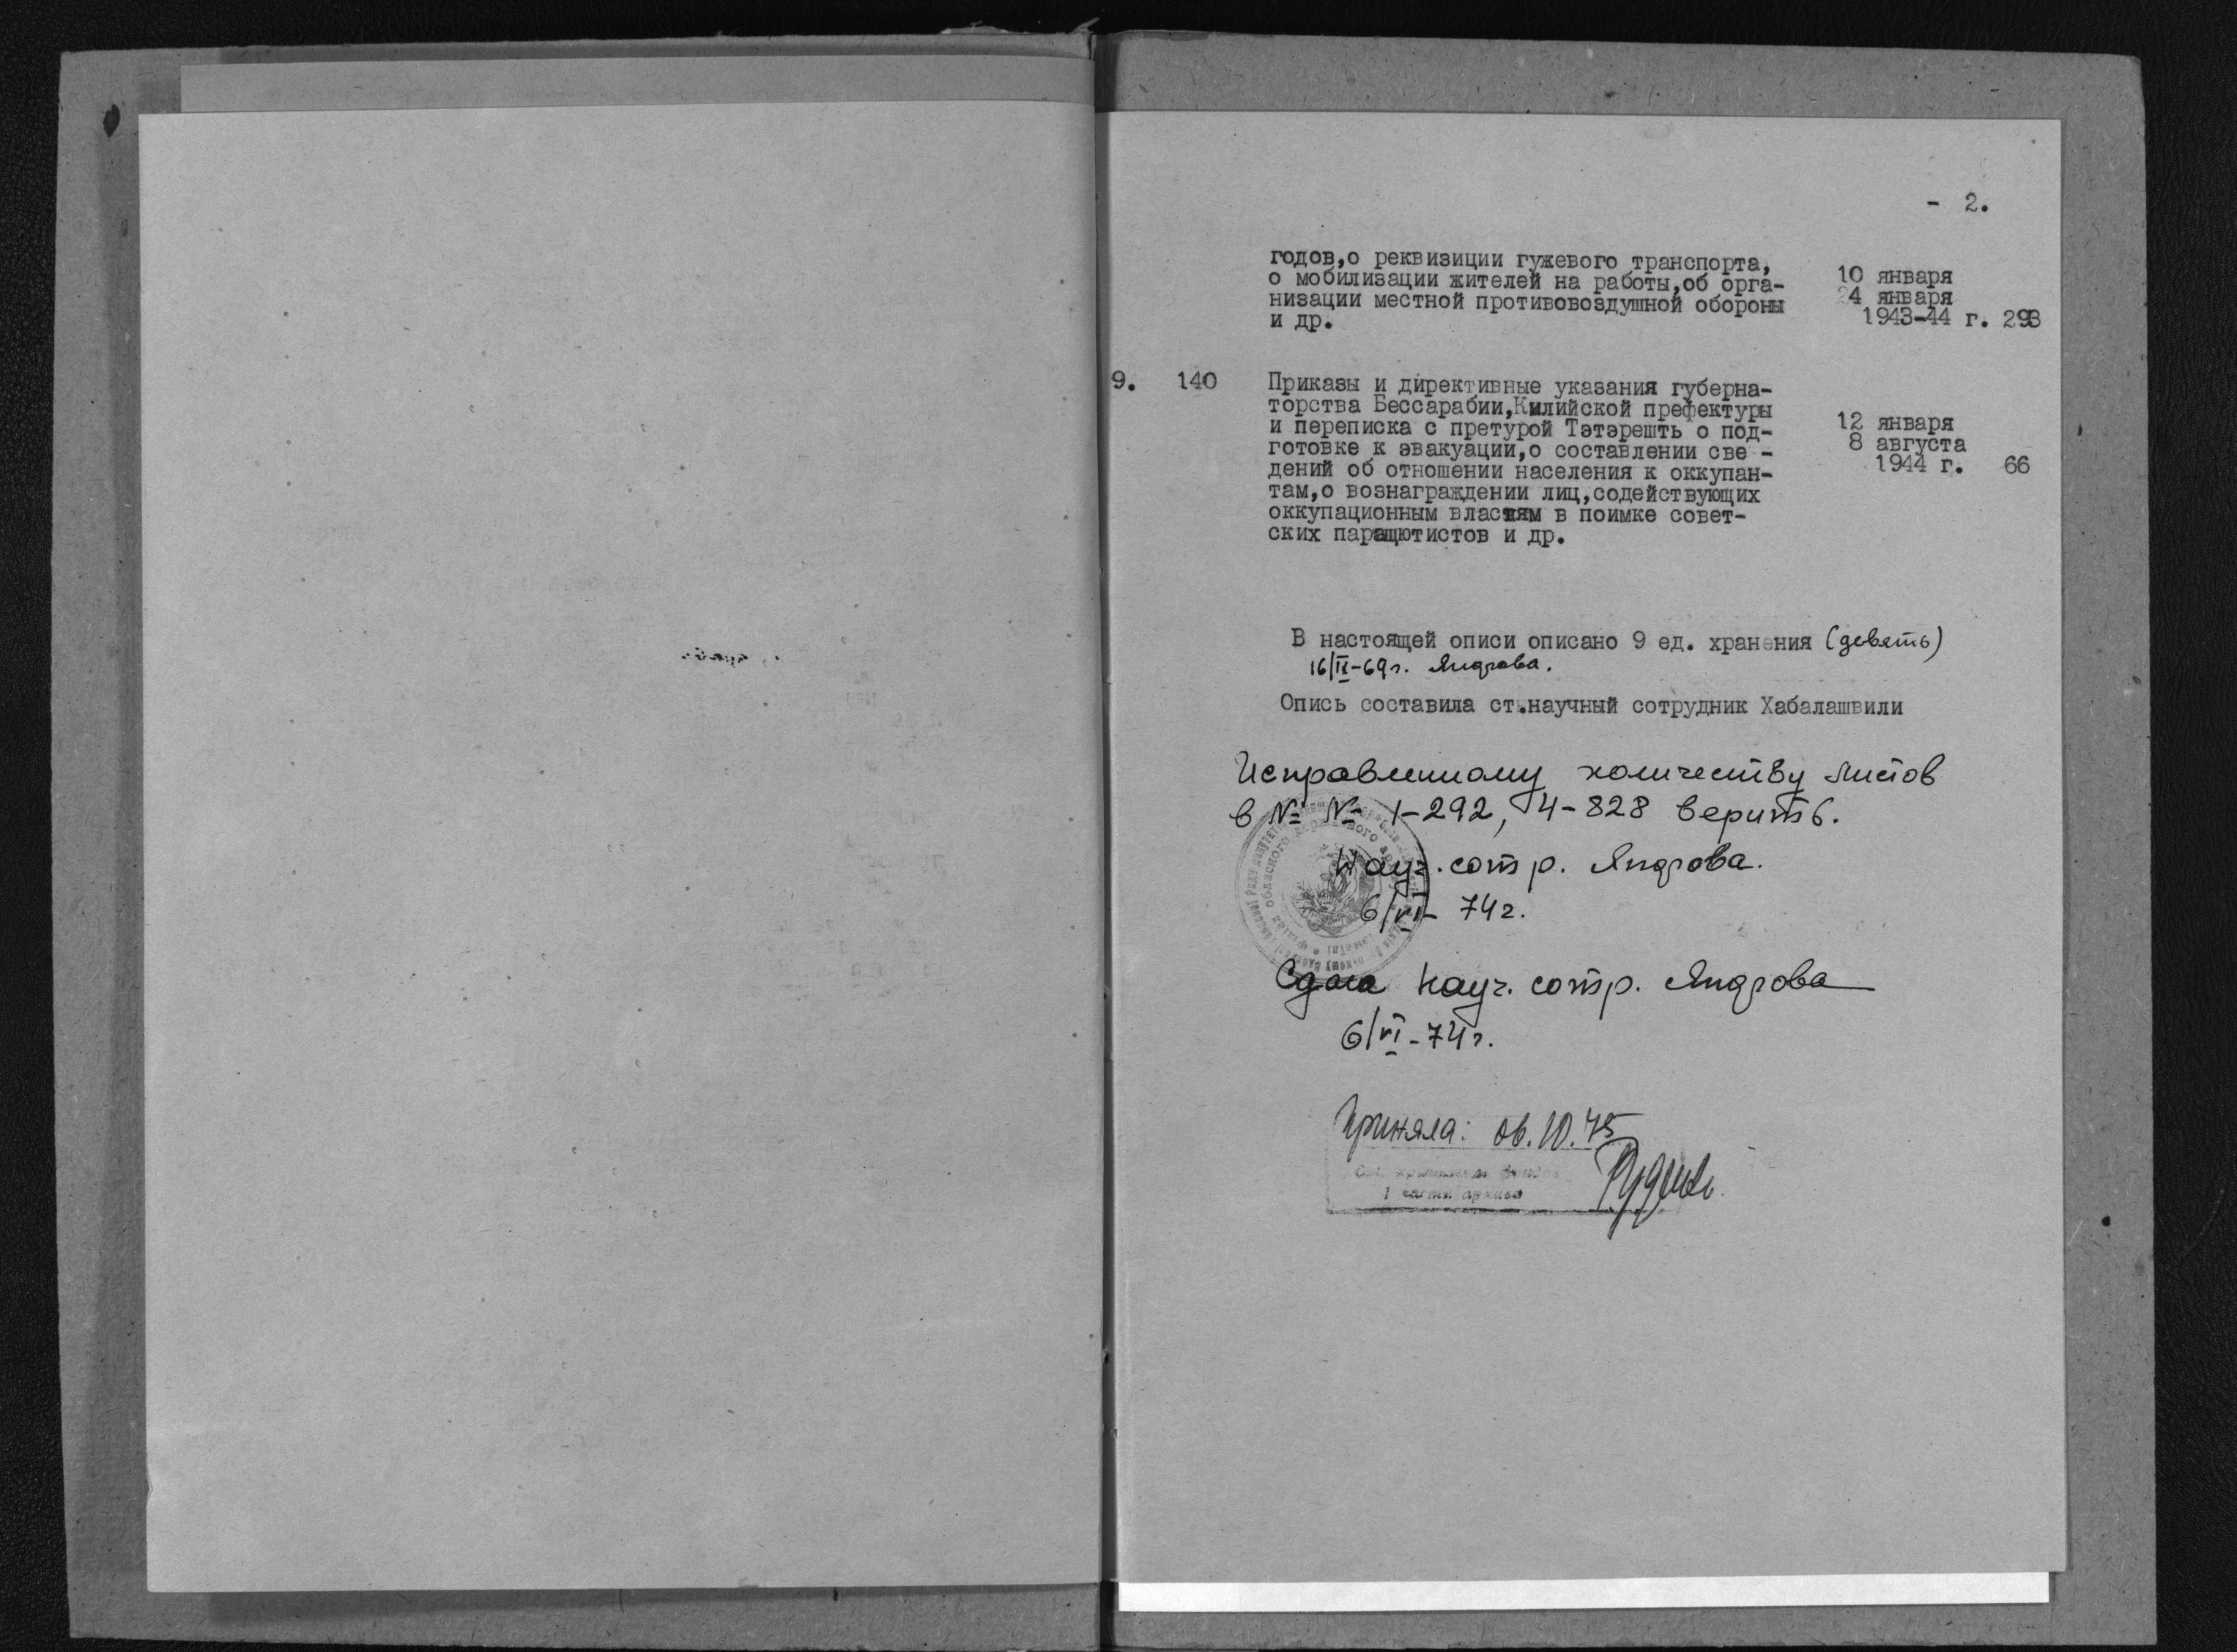 - 2.
годов,о реквизиции гужевого транспорта,
о мобилизации жителей на работы,об орга-
низации местной противовоздушной обороны
и др.
10 января
24 января
1943-44 г. 293
9. 140 Приказы и директивные указания губерна-
торства Бессарабии,Килийской префектуры
и переписка с претурой Тэтэрешть о под-
готовке к эвакуации,о составлении све -
дений об отношении населения к оккупан-
там,о вознаграждении лиц,содействующих
оккупационным властям в поимке совет-
ских паращютистов и др.
12 января
8 августа
1944 г. 66
В настоящей описи описано 9 ед. хранения (девять)
-69г. Яндрова.
Опись составила ст.научный сотрудник Хабалашвили
Исправленному количеству листов
в № № 1-292, 4-828 верить.
Науч. сотр. Яндрова.
6/VI- 74г.
Сдала науч. сотр. Яндрова
6/VI-74г.
Приняла: 06.10.75
1 части архива